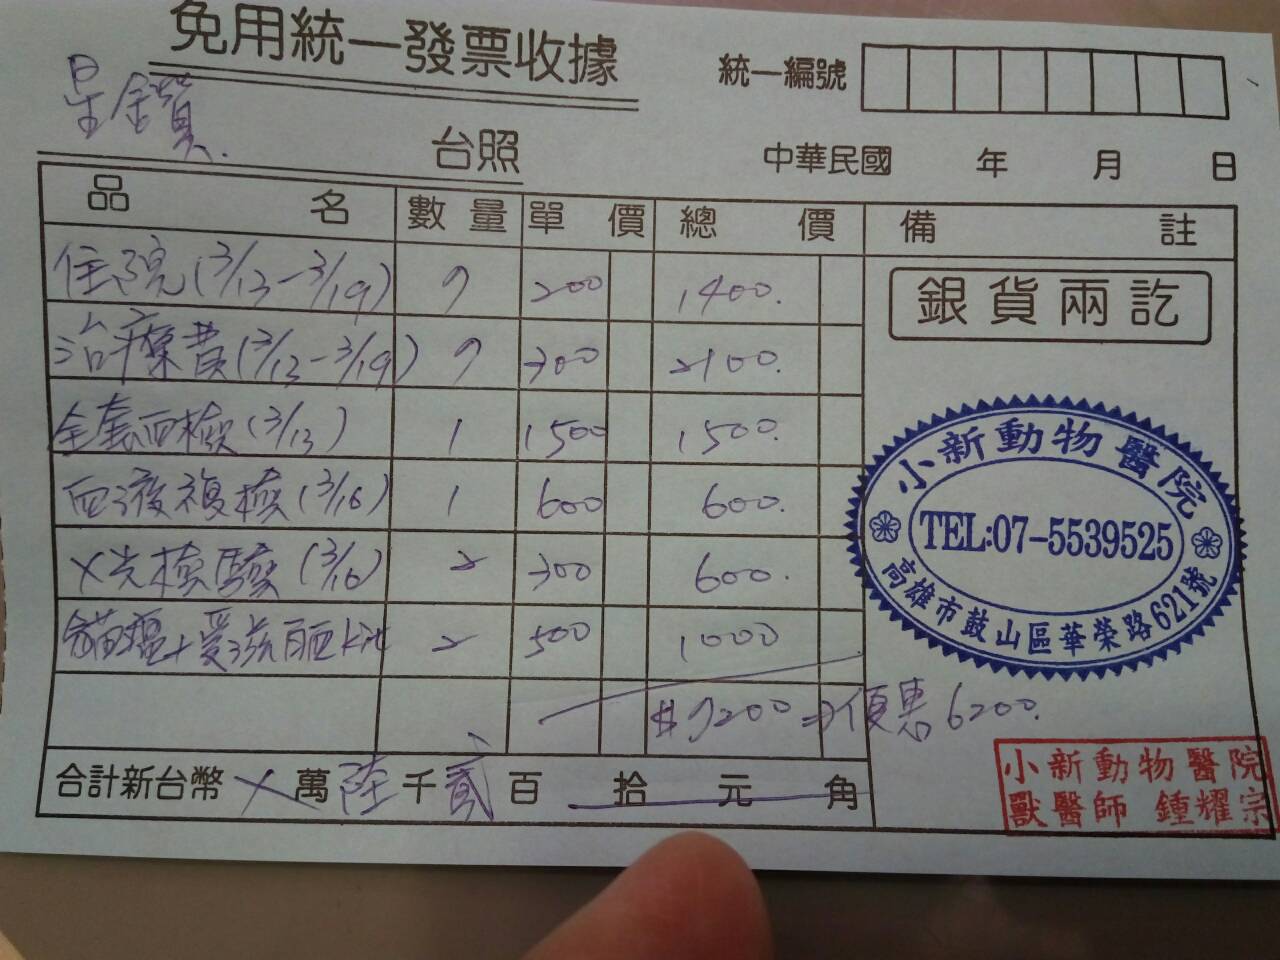 免用統一發票收據
統一編號
星鑽
台照
中華民國 年 月 日
品名 數量 單價 總價 備註
住院(3/13-3/19) 7 200 1400.
治療費(3/13-3/19) 7 300 2100.
全套血檢(3/13) 1 1500 1500.
血液複檢(3/16) 1 600 600.
X光檢驗(3/16) 2 300 600.
貓瘟+愛滋白血 2 500 1000
$7200 ⇒ 優惠6200.
合計新台幣 X 萬 陸 千 貳 百 拾 元 角
銀貨兩訖
小新動物醫院
TEL:07-5539525
高雄市鼓山區華榮路621號
小新動物醫院
獸醫師 鍾耀宗